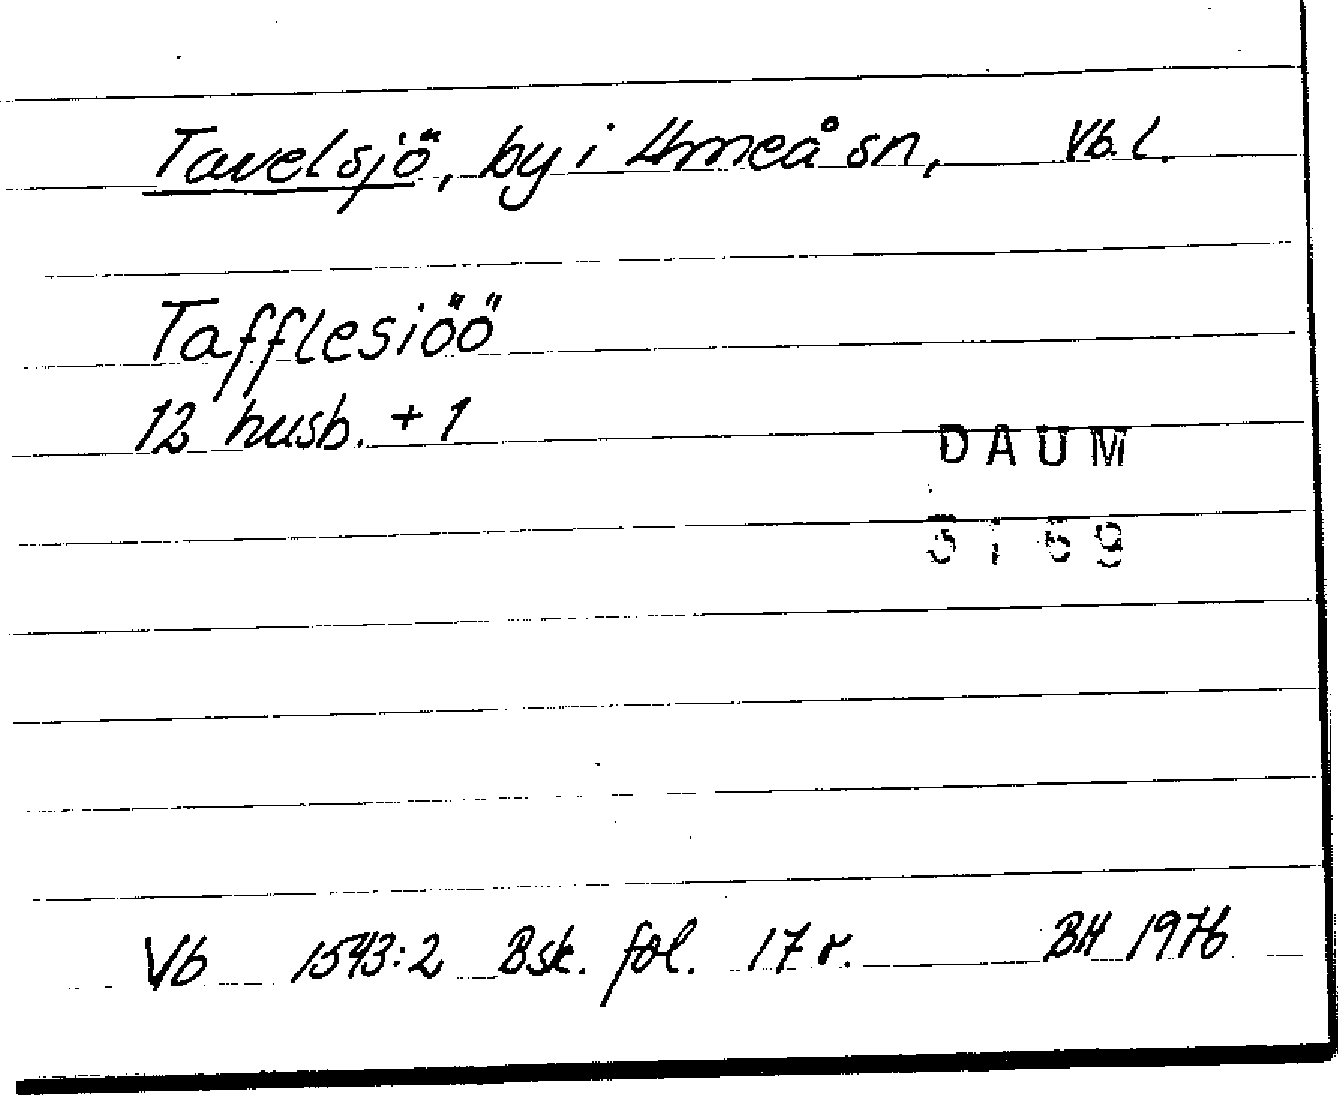 Tavelsjö, by i Umeå sn, Vb. l.
Tafflesiöö
12 husb. + 1
DAUM
Vb 1543:2 Bsk. fol. 17 r. BH 1976